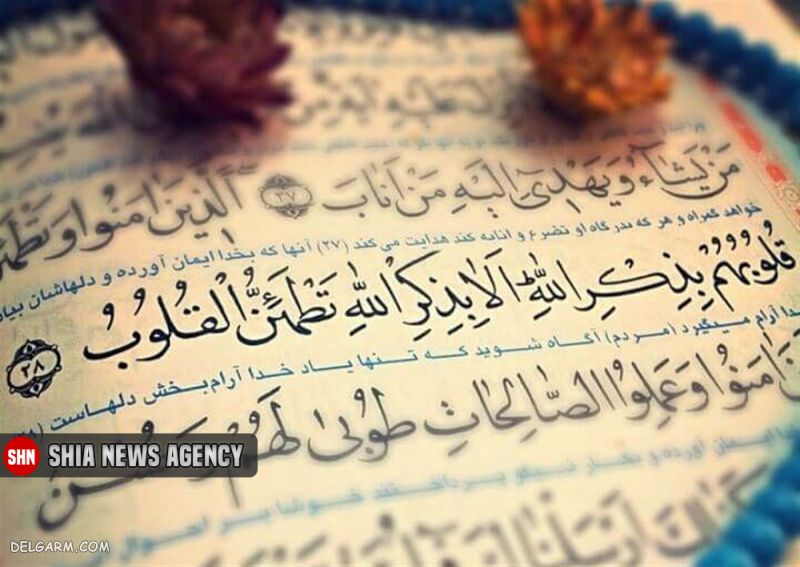 مَنْ يَشَاءُ وَيَهْدِي إِلَيْهِ مَنْ أَنَابَ ﴿۲۷﴾ الَّذِينَ آمَنُوا وَتَطْمَئِنُّ
خواهد گمراه و هر که بدرگاه او تضرع و انابه کند هدایت می کند (۲۷) آنها که بخدا ایمان آورده و دلهاشان بیاد
قُلُوبُهُمْ بِذِكْرِ اللَّهِ أَلَا بِذِكْرِ اللَّهِ تَطْمَئِنُّ الْقُلُوبُ ﴿۲۸﴾
خدا آرام میگیرد (مردم) آگاه شوید که تنها یاد خدا آرام‌بخش دلهاست (۲۸)
آمَنُوا وَعَمِلُوا الصَّالِحَاتِ طُوبَىٰ لَهُمْ وَحُسْنُ
ایمان آورده و بکار نیکو پرداختند خوشا بر احوال
SHN SHIA NEWS AGENCY
DELGARM.COM